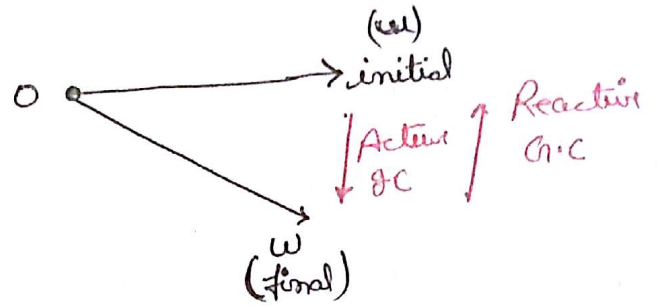 (ω)
initial
O
Active
gC
Reactive
G.C
ω
(final)